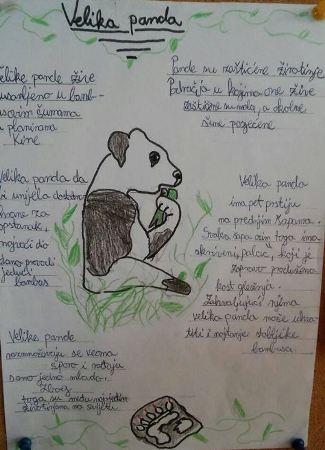 Velika panda
Velike pande žive
usamljeno u bamb-
šumama
u planinama
Kine
Pande su zaštićene životinje
Područja u kojima one žive
zaštićene su mala, a okolne
šume posječene
Velika panda da
bi unijela dostatno
hrane za
opstanak,
mogući dio
dana provodi
jedući
bambus
Velika panda
ima pet prstiju
na prednjim šapama.
Svaka šapa osim toga ima
palac, koji je
zapravo produžena
kost gležnja.
Zahvaljujući njima
velika panda može uhva-
titi i najtanje stabljike
bambusa.
Velike pande
razmnožavaju se veoma
sporo i rađaju
samo jedno mlado.
Zbog
toga su među najrjeđim
životinjama na svijetu